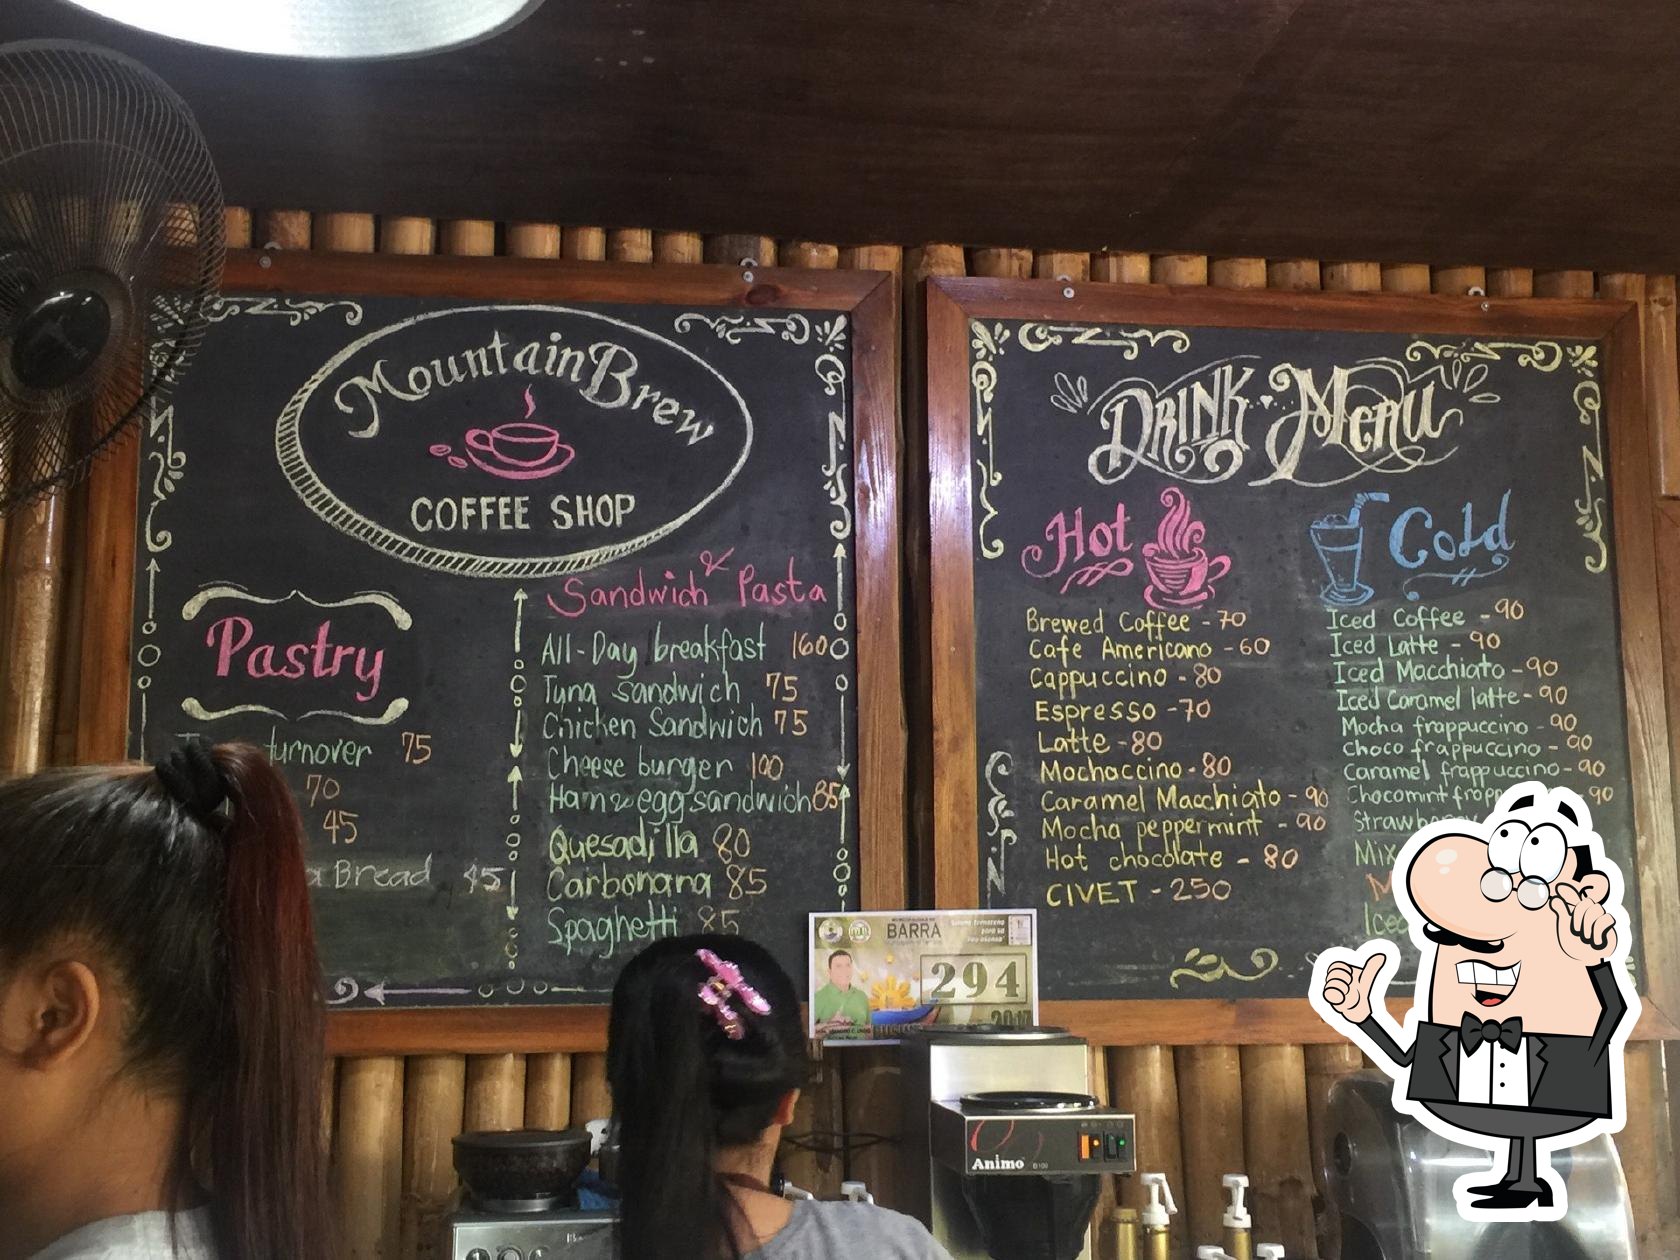 Mountain Brew
COFFEE SHOP
Pastry
turnover 75
70
45
Bread 45
Sandwich & Pasta
All-Day breakfast 160
Tuna Sandwich 75
Chicken Sandwich 75
Cheese burger 100
Ham & egg sandwich 85
Quesadilla 80
Carbonara 85
Spaghetti 85
DRINK Menu
Hot
Brewed Coffee - 70
Cafe Americano - 60
Cappuccino - 80
Espresso - 70
Latte - 80
Mochaccino - 80
Caramel Macchiato - 90
Mocha peppermint - 90
Hot chocolate - 80
CIVET - 250
Cold
Iced Coffee - 90
Iced Latte - 90
Iced Macchiato - 90
Iced Caramel latte - 90
Mocha frappuccino - 90
Choco frappuccino - 90
Caramel frappuccino - 90
Chocomint frapp - 90
Strawberry
Mix
Iced
BARRA
294
2017
Animo